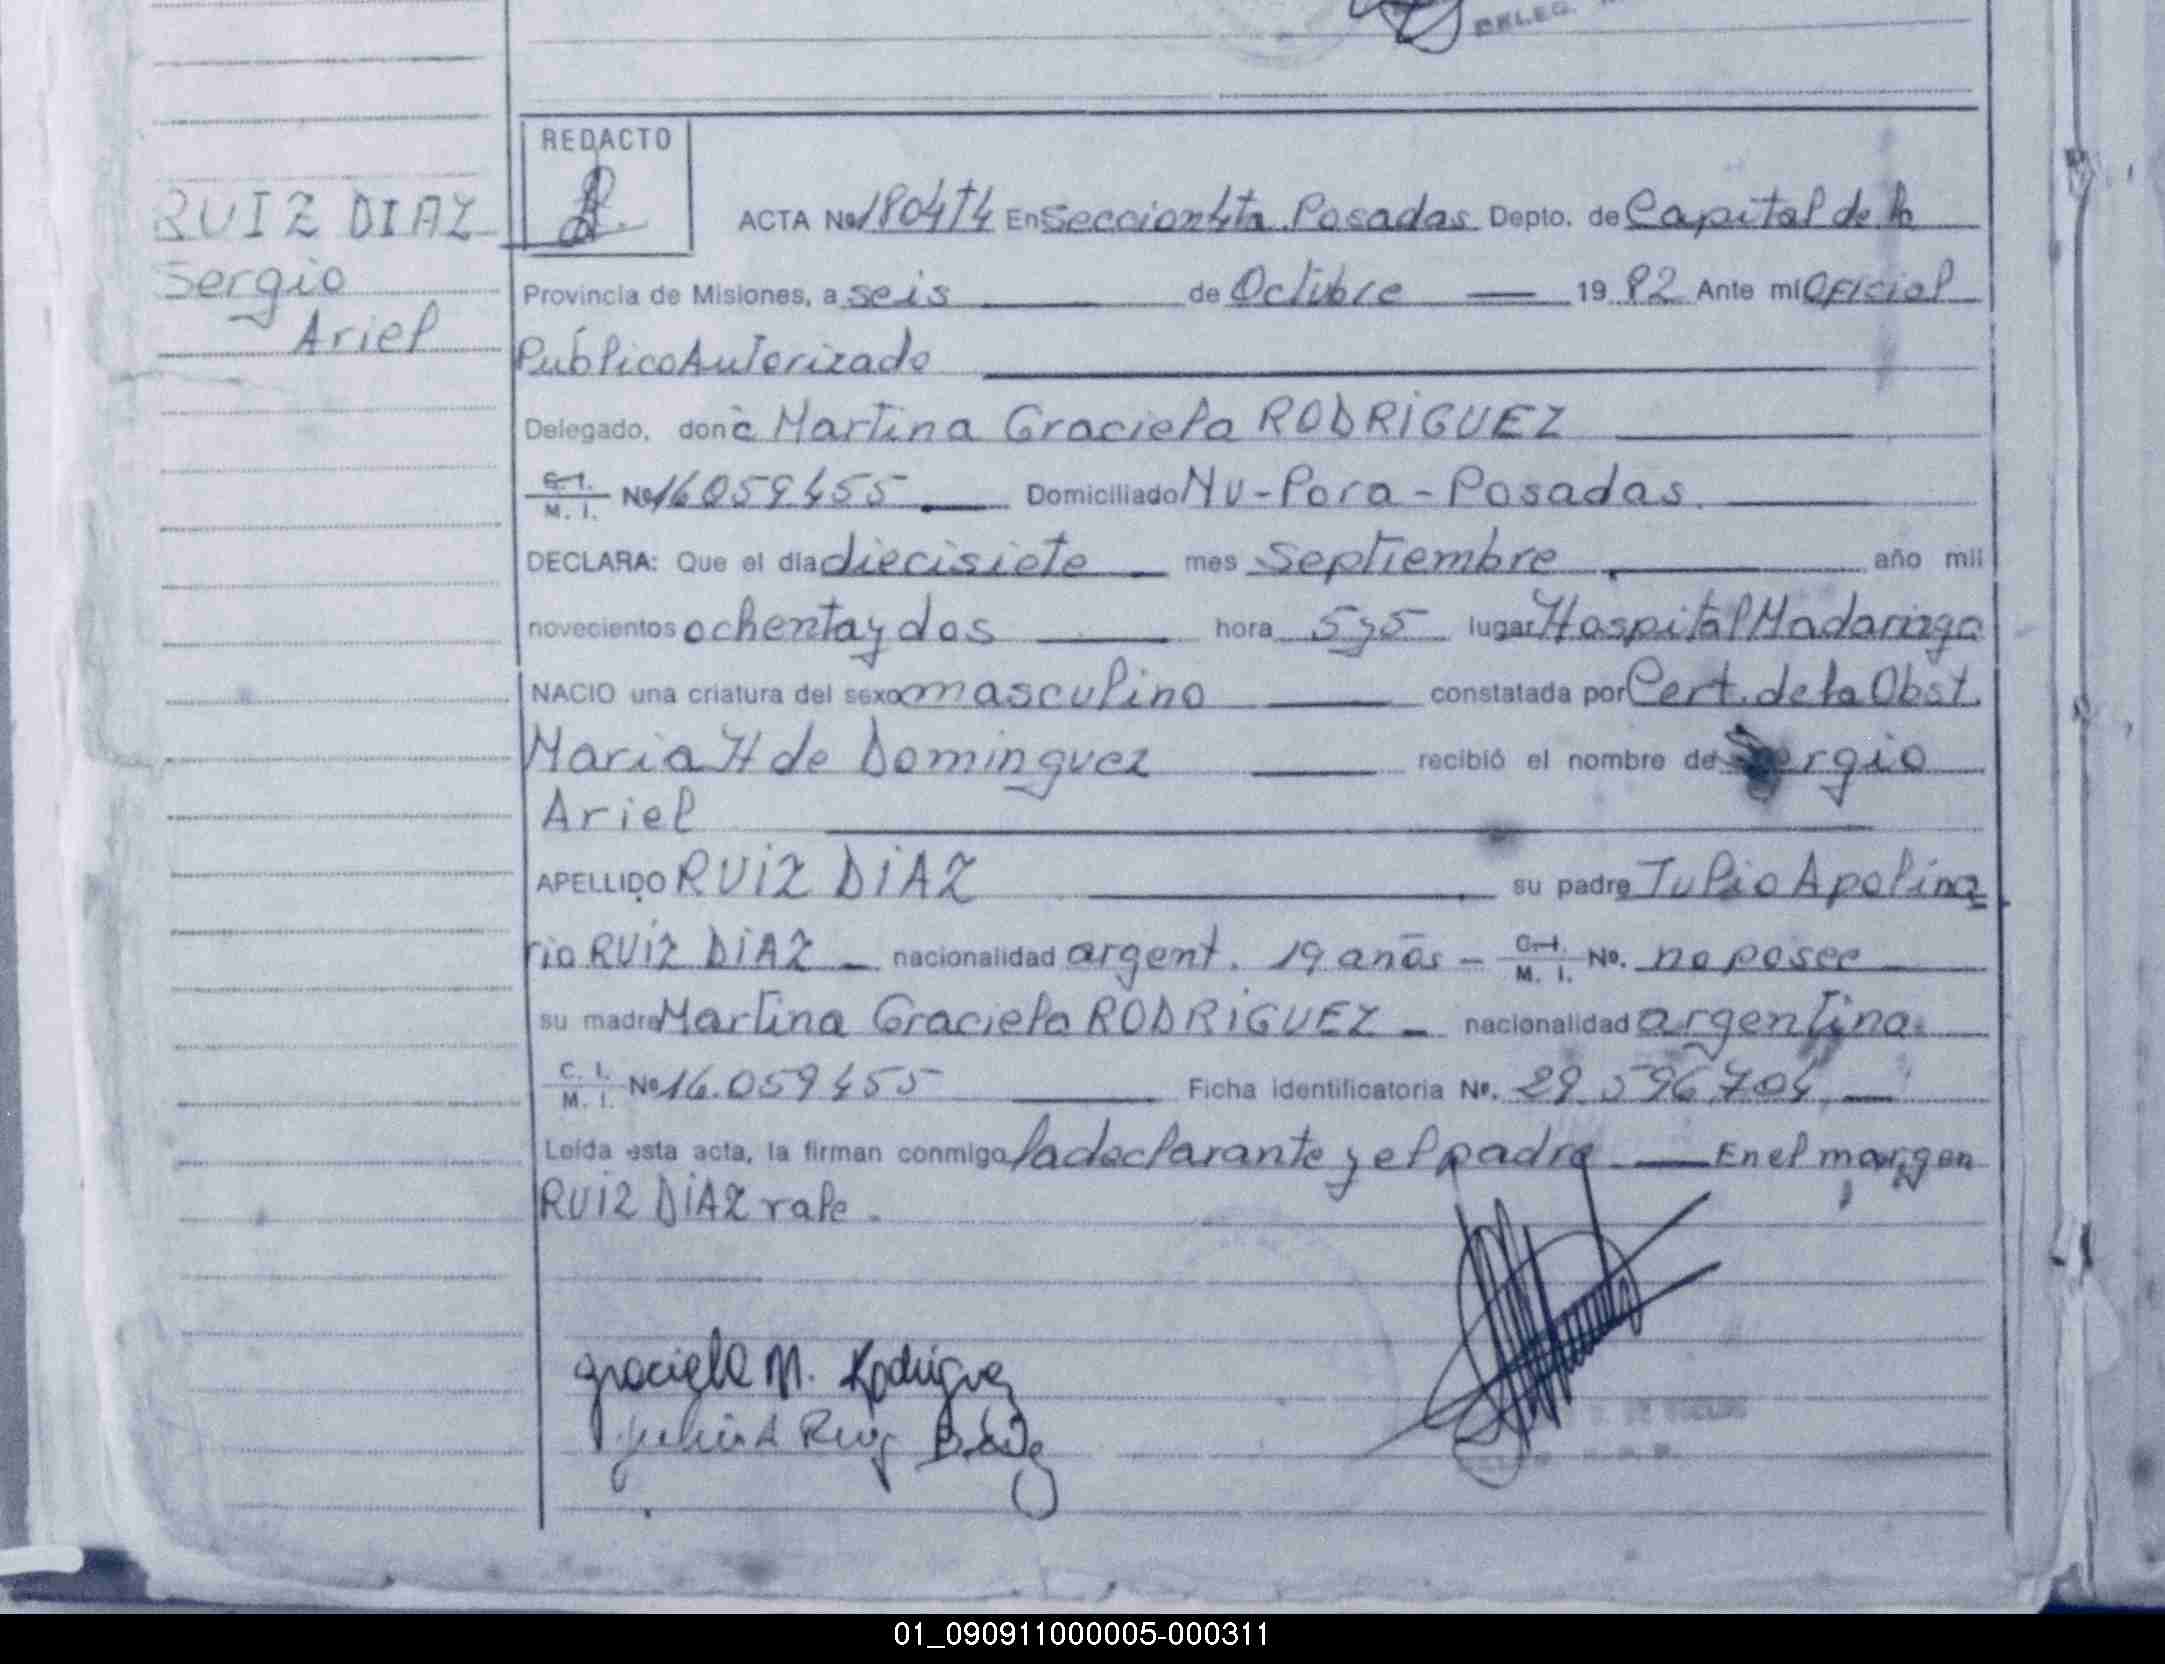 DELEG.
REDACTO
RUIZ DIAZ
Sergio
Ariel
ACTA No 1804T4 En Seccion 4ta. Posadas Depto. de Capital de la
Provincia de Misiones, a seis de Octubre 19 82 Ante mí Oficial
Publico Autorizado
Delegado, doña Martina Graciela RODRIGUEZ
C.I. M. I. No 16.059.455 Domiciliado Ñu-Pora-Posadas
DECLARA: Que el día diecisiete mes Septiembre año mil
novecientos ochenta y dos hora 5 y 5 lugar Hospital Madariaga
NACIO una criatura del sexo masculino constatada por Cert. de la Obst.
Maria H de Dominguez recibió el nombre de Sergio
Ariel
APELLIDO RUIZ DIAZ su padre Julio Apolina
rio RUIZ DIAZ nacionalidad argent. 19 años - C.I. M. I. No. no posee
su madre Martina Graciela RODRIGUEZ nacionalidad argentina.
C. I. M. I. No 16.059455 Ficha identificatoria No. 29.596.704
Leída esta acta, la firman conmigo la declarante y el padre En el margen
RUIZ DIAZ vale.
graciela M. Rodriguez
Ruiz
01_090911000005-000311